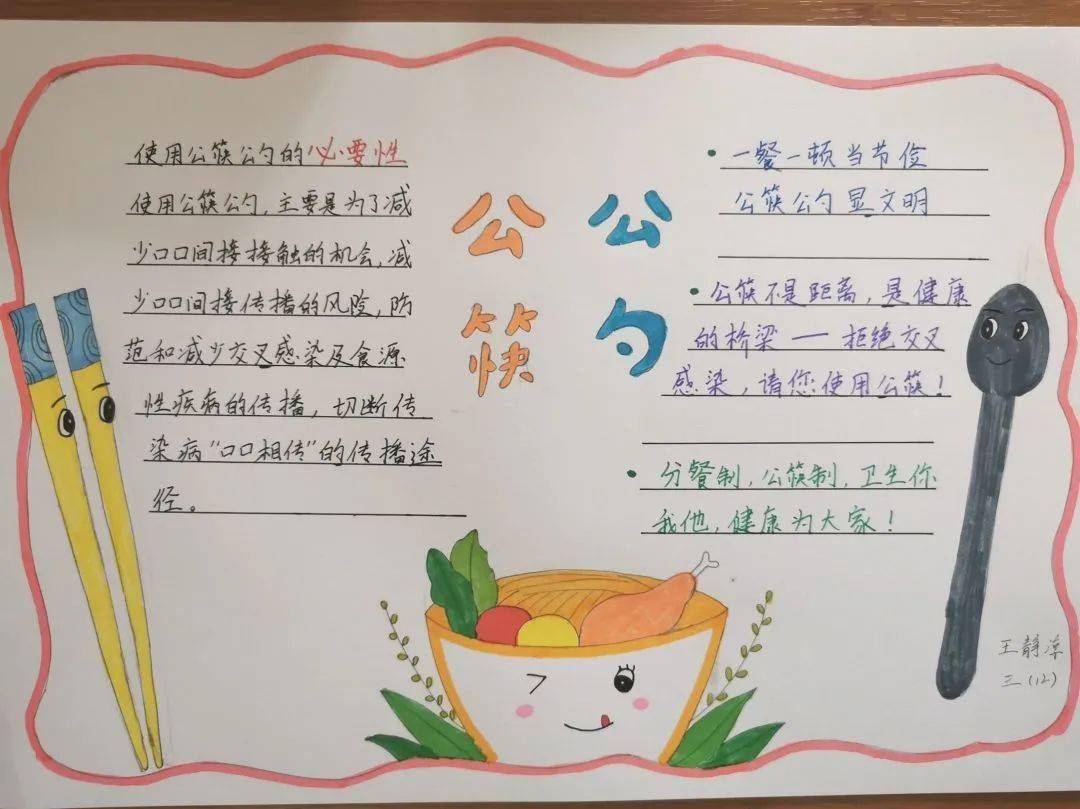 使用公筷公勺的必要性
使用公筷公勺，主要是为了减
少口口间接接触的机会，减
少口口间接传播的风险，防
范和减少交叉感染及食源
性疾病的传播，切断传
染病“口口相传”的传播途
径。
公筷
公勺
一餐一顿当节俭
公筷公勺显文明
公筷不是距离，是健康
的桥梁——拒绝交叉
感染，请您使用公筷！
分餐制，公筷制，卫生你
我他，健康为大家！
王静
三(12)